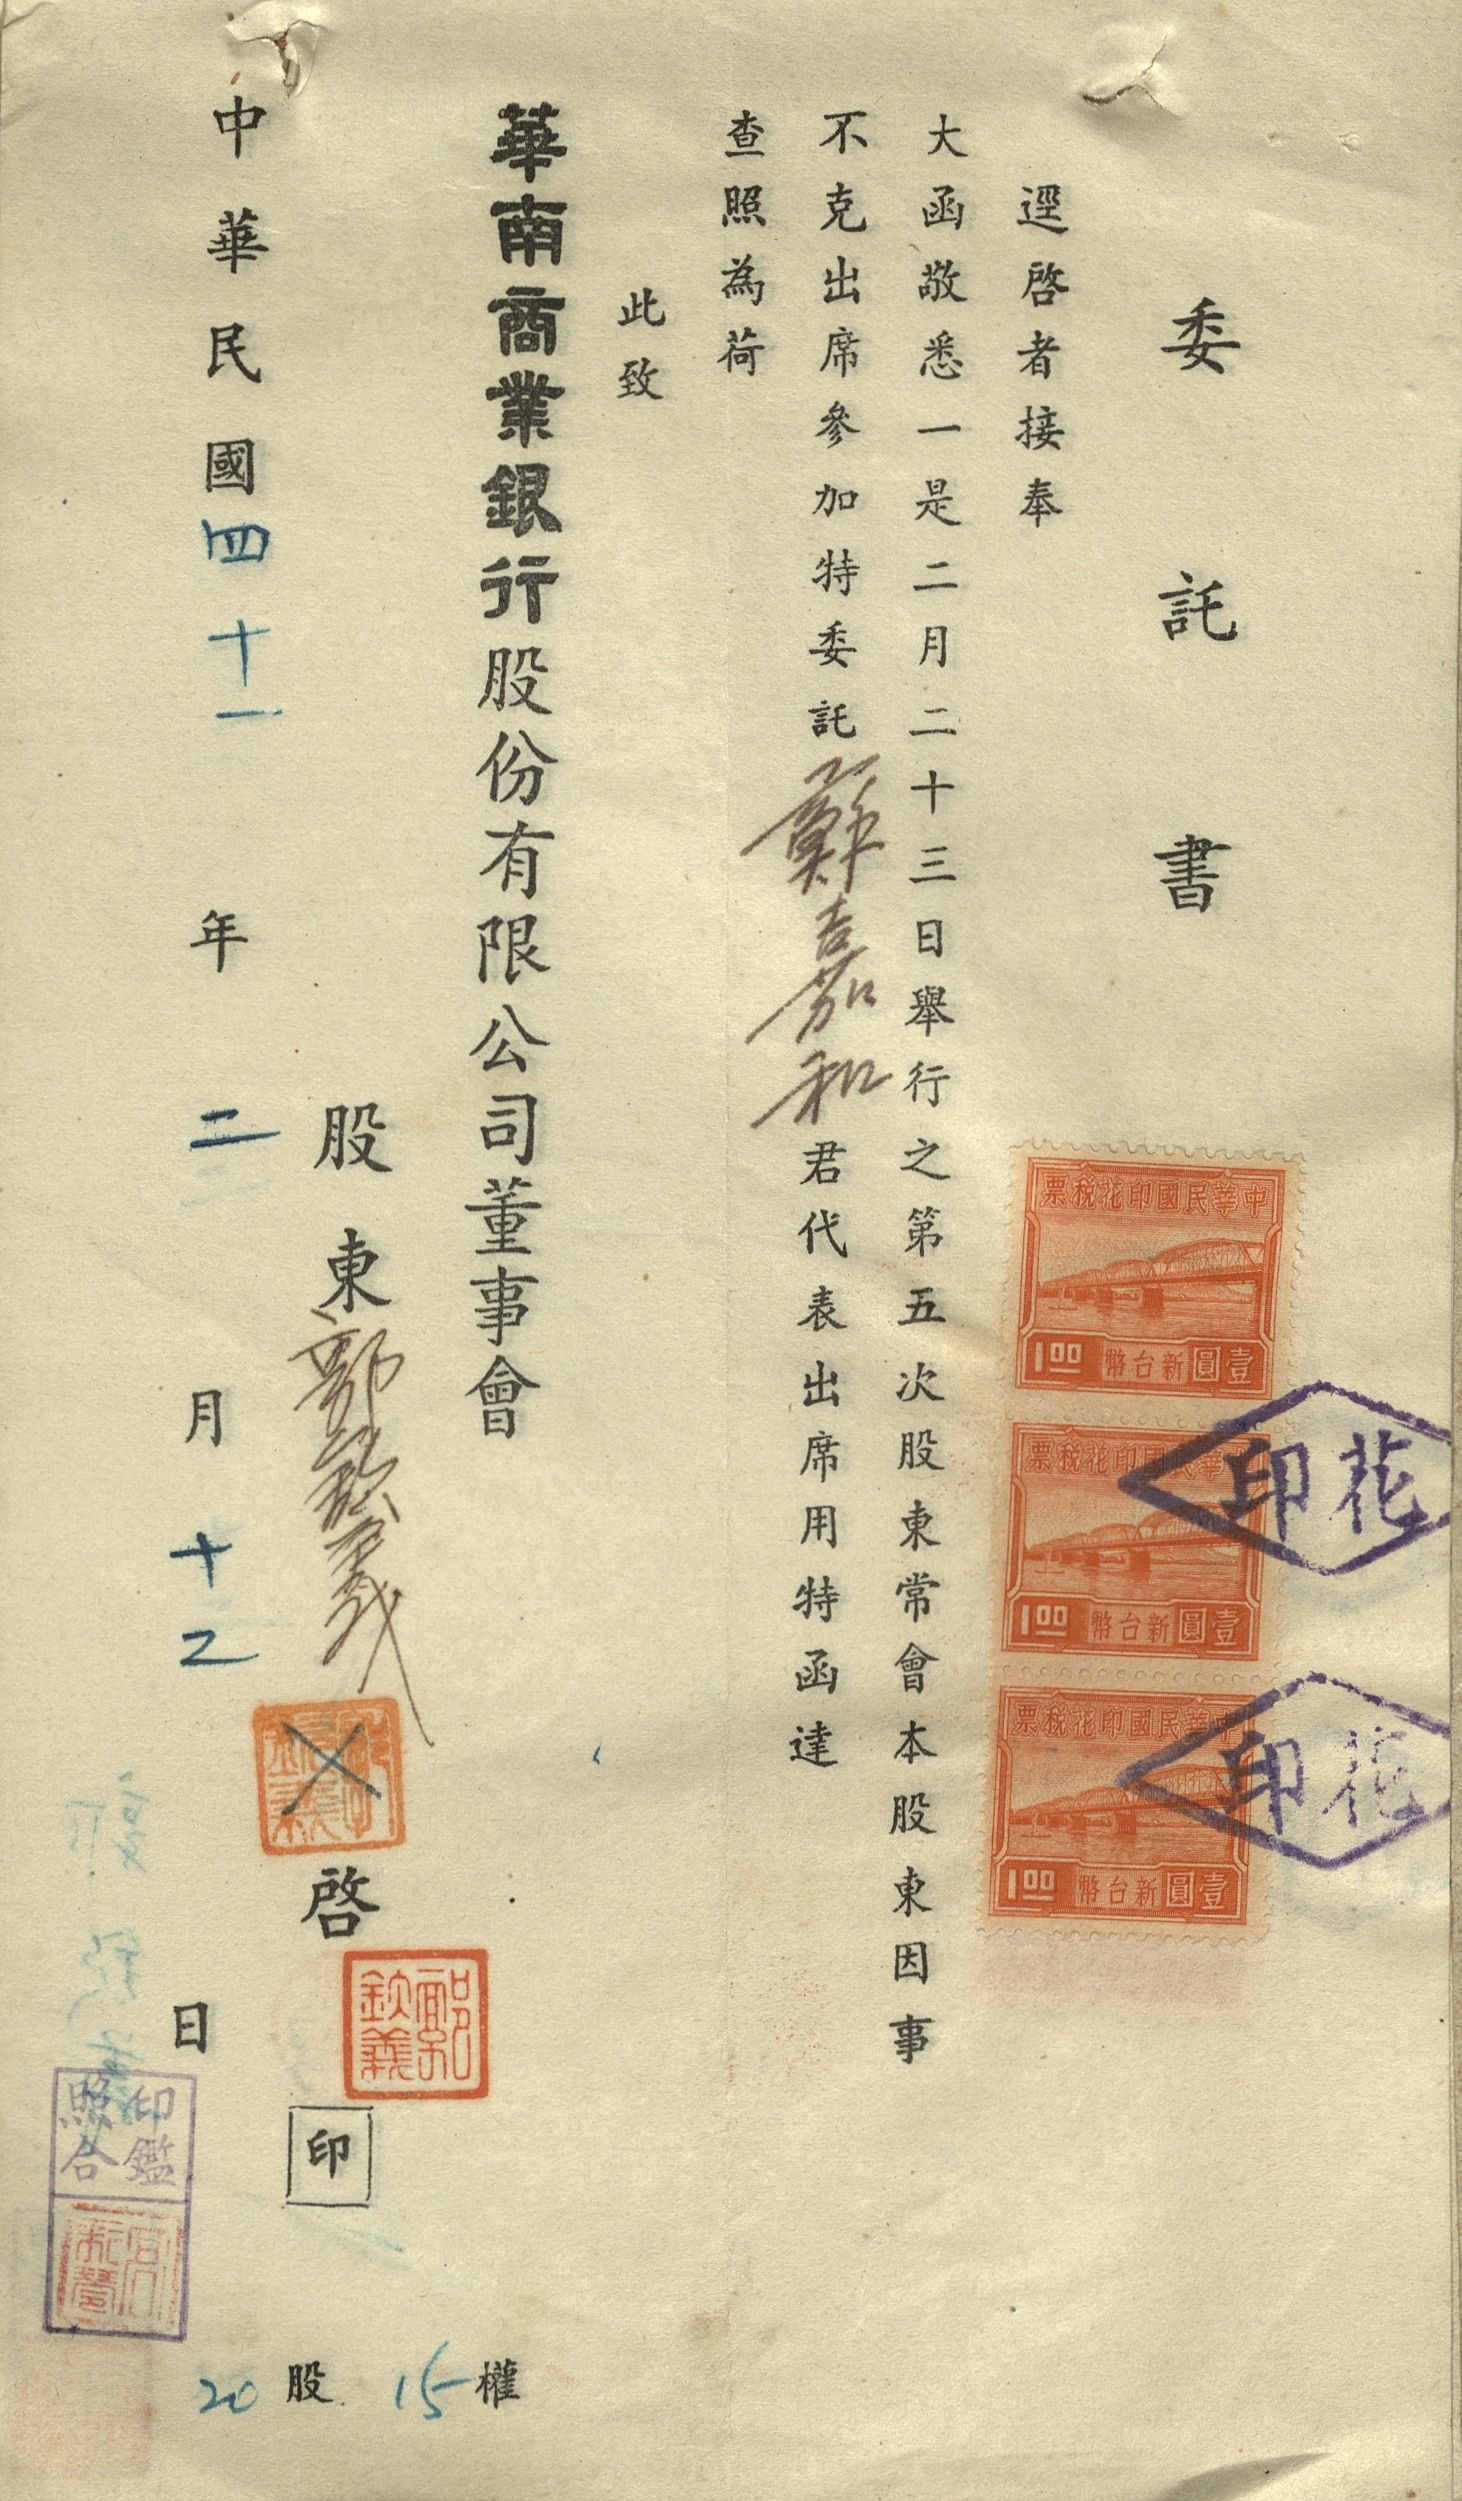 委託書
逕啓者接奉
大函敬悉一是二月二十三日舉行之第五次股東常會本股東因事
不克出席參加特委託蘇嘉和君代表出席用特函達
查照為荷
此致
華南商業銀行股份有限公司董事會
股東鄭欽義啓
印
中華民國四十一年二月十二日
20股 15權
中華民國印花税票
1.00 新台幣壹圓
中華民國印花税票
1.00 新台幣壹圓
中華民國印花税票
1.00 新台幣壹圓
花印
花印
印鑑
照合